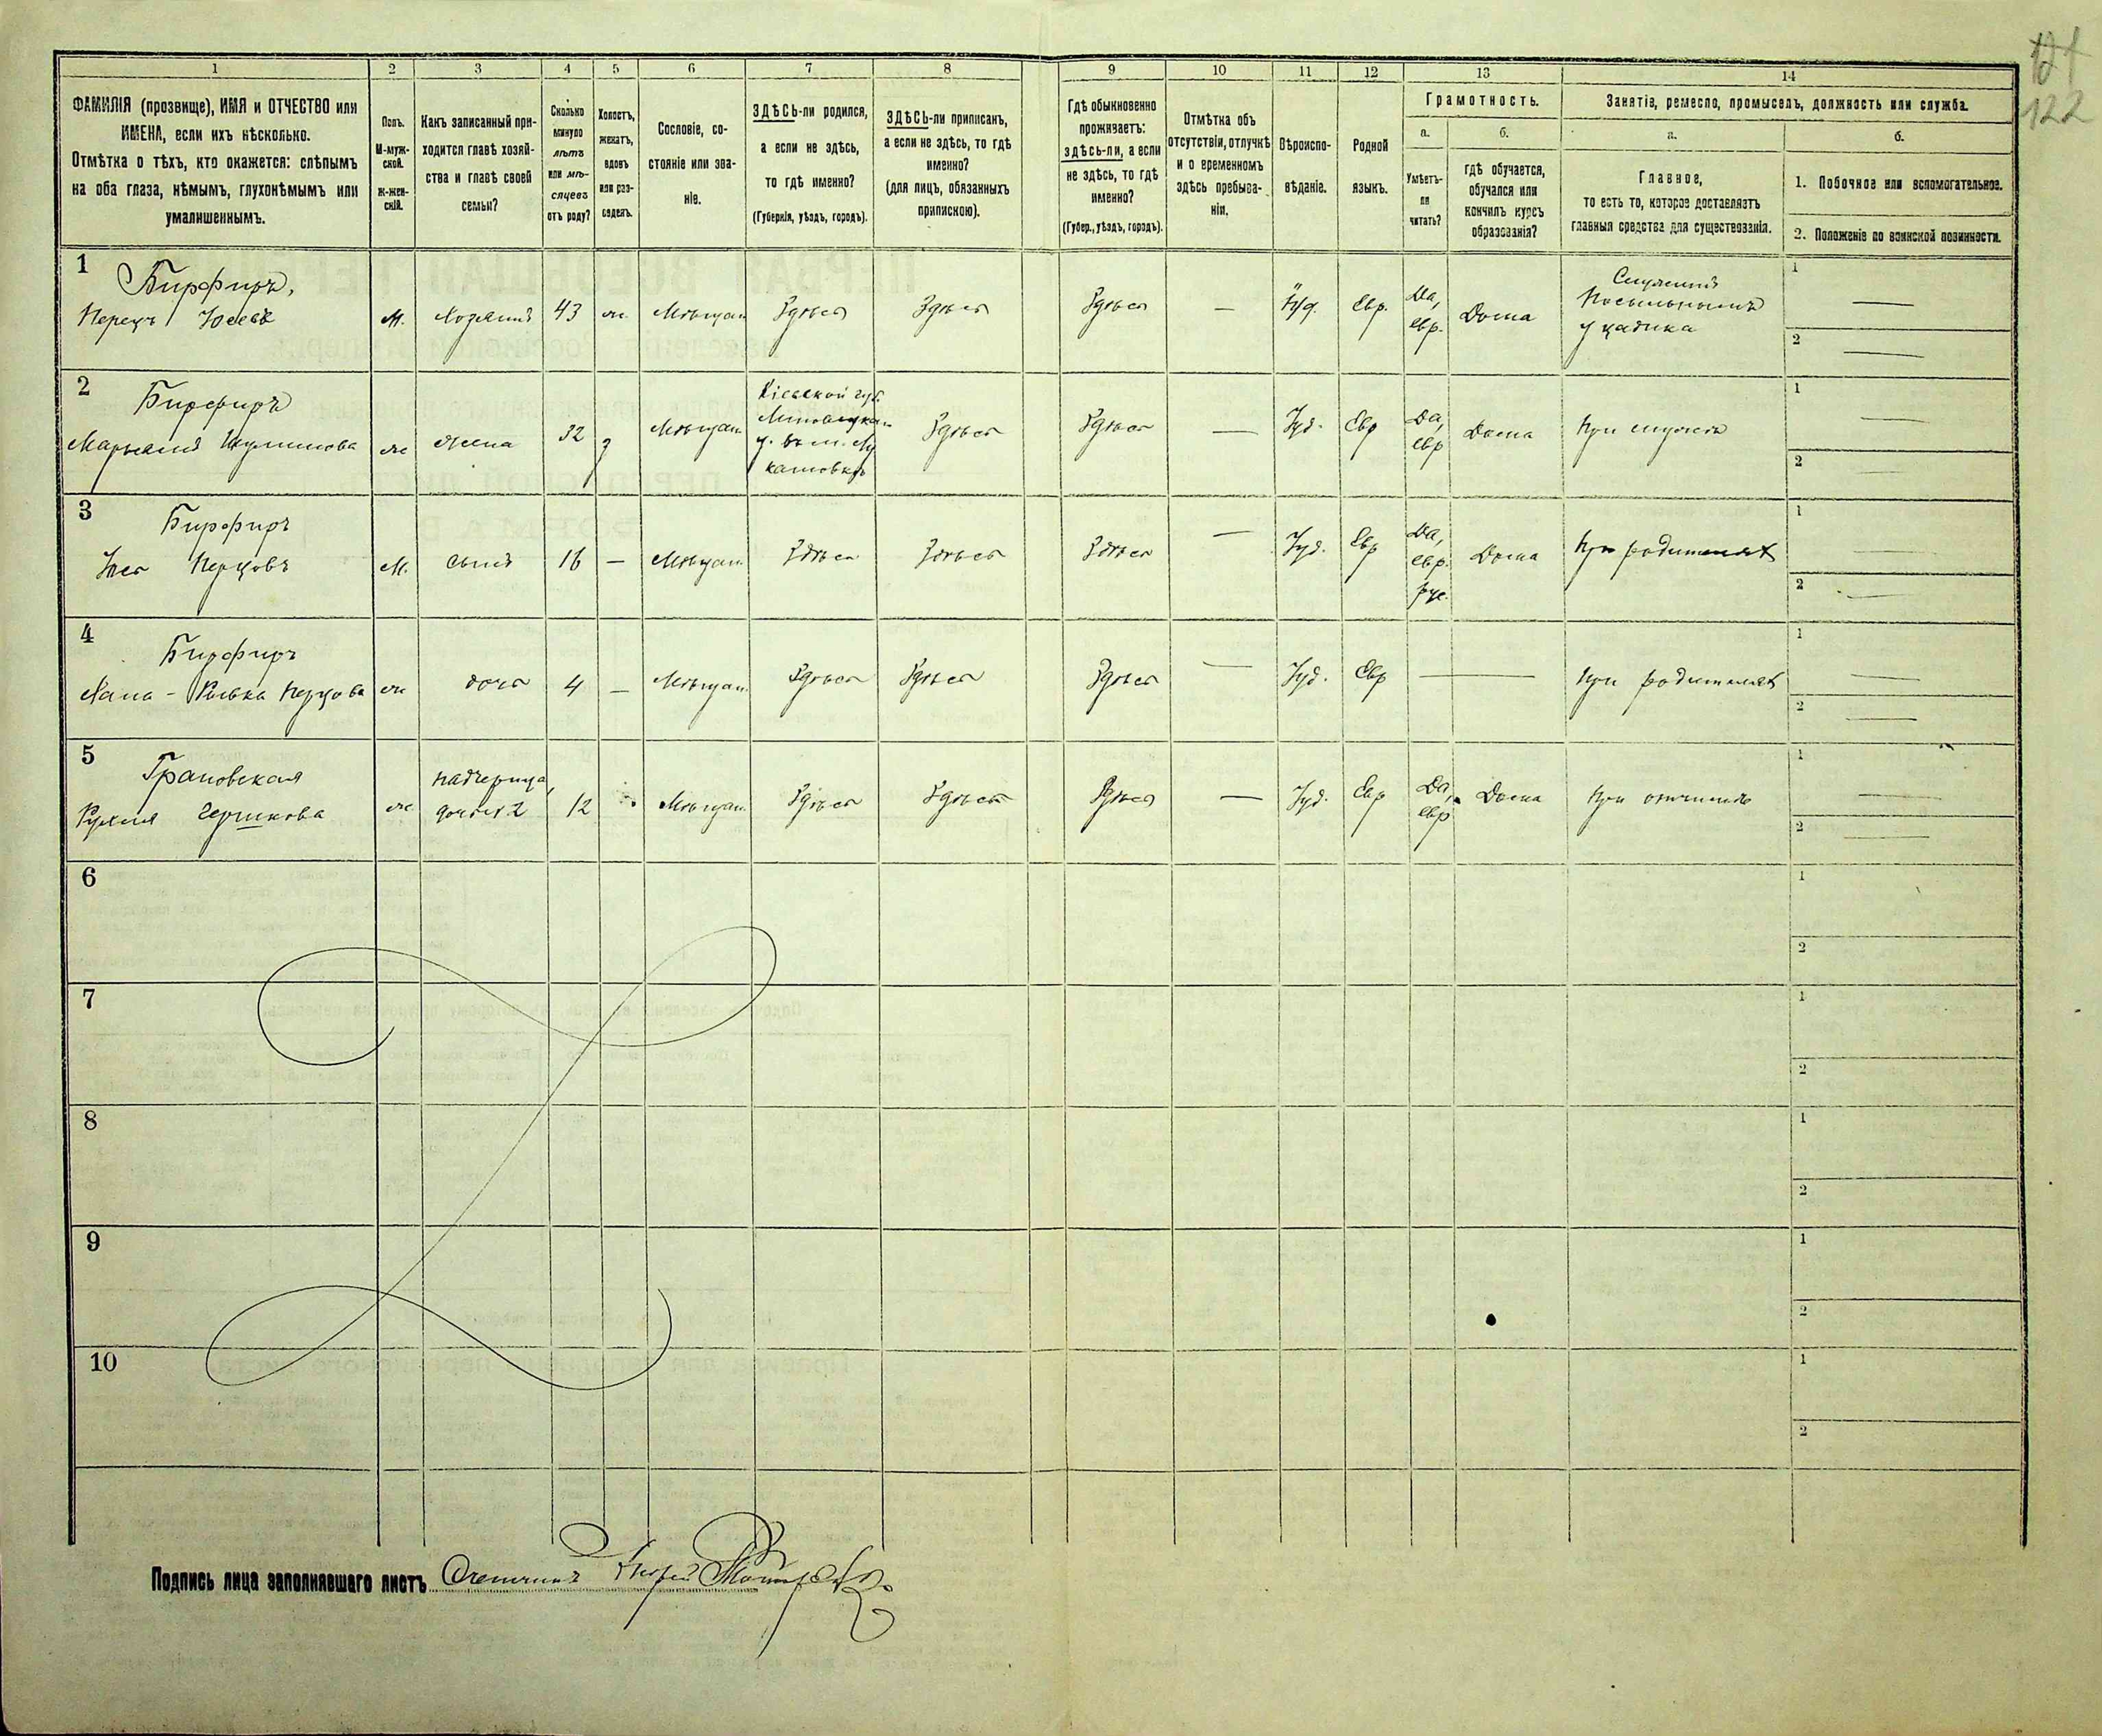 121
122
1 2 3 4 5 6 7 8 9 10 11 12 13 14
ФАМИЛІЯ (прозвище), ИМЯ и ОТЧЕСТВО или
ИМЕНА, если ихъ нѣсколько.
Отмѣтка о тѣхъ, кто окажется: слѣпымъ
на оба глаза, нѣмымъ, глухонѣмымъ или
умалишеннымъ.
Полъ.
М-муж-
ской.
Ж-жен-
скій.
Какъ записанный при-
ходится главѣ хозяй-
ства и главѣ своей
семьи?
Сколько
минуло
лѣтъ
или мѣ-
сяцевъ
отъ роду?
Холостъ,
женатъ,
вдовъ
или раз-
веденъ.
Сословіе, со-
стояніе или зва-
ніе.
ЗДѢСЬ-ли родился,
а если не здѣсь,
то гдѣ именно?
(Губернія, уѣздъ, городъ).
ЗДѢСЬ-ли приписанъ,
а если не здѣсь, то гдѣ
именно?
(для лицъ, обязанныхъ
припискою).
Гдѣ обыкновенно
проживаетъ:
здѣсь-ли, а если
не здѣсь, то гдѣ
именно?
(Губер., уѣздъ, городъ).
Отмѣтка объ
отсутствіи, отлучкѣ
и о временномъ
здѣсь пребыва-
ніи.
Вѣроиспо-
вѣданіе.
Родной
языкъ.
Грамотность.
а.
Умѣетъ-
ли
читать?
б.
гдѣ обучается,
обучался или
кончилъ курсъ
образованія?
Занятіе, ремесло, промыселъ, должность или служба.
а.
Главное,
то есть то, которое доставляетъ
главныя средства для существованія.
б.
1. Побочное или вспомогательное.
2. Положеніе по воинской повинности.
1
Бирфиръ,
Перецъ
м.
Хозяинъ
43
ж.
Мѣщан
Здѣсь
Здѣсь
Здѣсь
—
Іуд.
Евр.
Да,
евр.
Дома
Служитъ
у цадика
1 —
2 —
2
Бирфиръ
ж
жена
32
Мѣщан
Кіевской губ.
Здѣсь
Здѣсь
—
Іуд.
Евр
Да,
евр
Дома
При мужѣ
1 —
2 —
3
Бирфиръ
Перцовъ
М.
сынъ
16
—
Мѣщан
Здѣсь
Здѣсь
Здѣсь
—
Іуд.
Евр
Да,
евр.
рус.
Дома
При родителях
1 —
2 —
4
Бирфиръ
Перцова
ж
дочь
4
—
Мѣщан.
Здѣсь
Здѣсь
Здѣсь
—
Іуд.
Евр
—
При родителях
1 —
2 —
5
Грановская
Рухля Гершкова
ж
падчерица,
дочь № 2
12
Мѣщан
Здѣсь
Здѣсь
Здѣсь
—
Іуд.
Евр
Да,
евр
Дома
При отчимѣ
1 —
2 —
6
1
2
7
1
2
8
1
2
9
1
2
10
1
2
Подпись лица заполнявшаго листъ